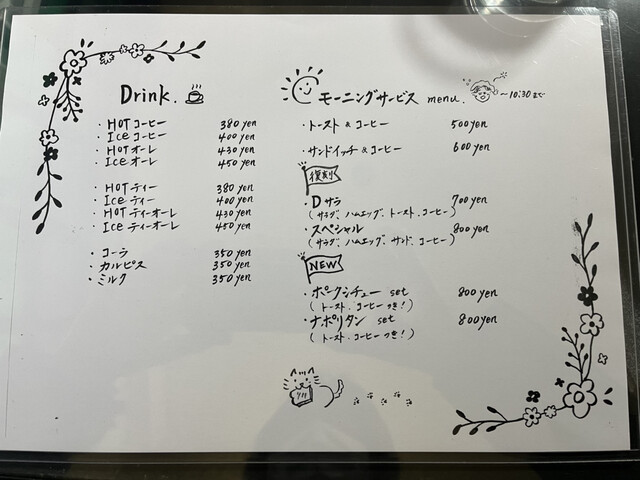 Drink.
・HOT コーヒー 380 yen
・Ice コーヒー 400 yen
・HOT オーレ 430 yen
・Ice オーレ 450 yen
・HOT ティー 380 yen
・Ice ティー 400 yen
・HOT ティーオーレ 430 yen
・Ice ティーオーレ 450 yen
・コーラ 350 yen
・カルピス 350 yen
・ミルク 350 yen
モーニングサービス menu. 〜10:30まで
・トースト & コーヒー 500 yen
・サンドイッチ & コーヒー 600 yen
復刻
・Dサラ 700 yen
(サラダ、ハムエッグ、トースト、コーヒー)
・スペシャル 800 yen
(サラダ、ハムエッグ、サンド、コーヒー)
NEW
・ポークシチュー set 800 yen
(トースト、コーヒーつき!)
・ナポリタン set 800 yen
(トースト、コーヒーつき!)